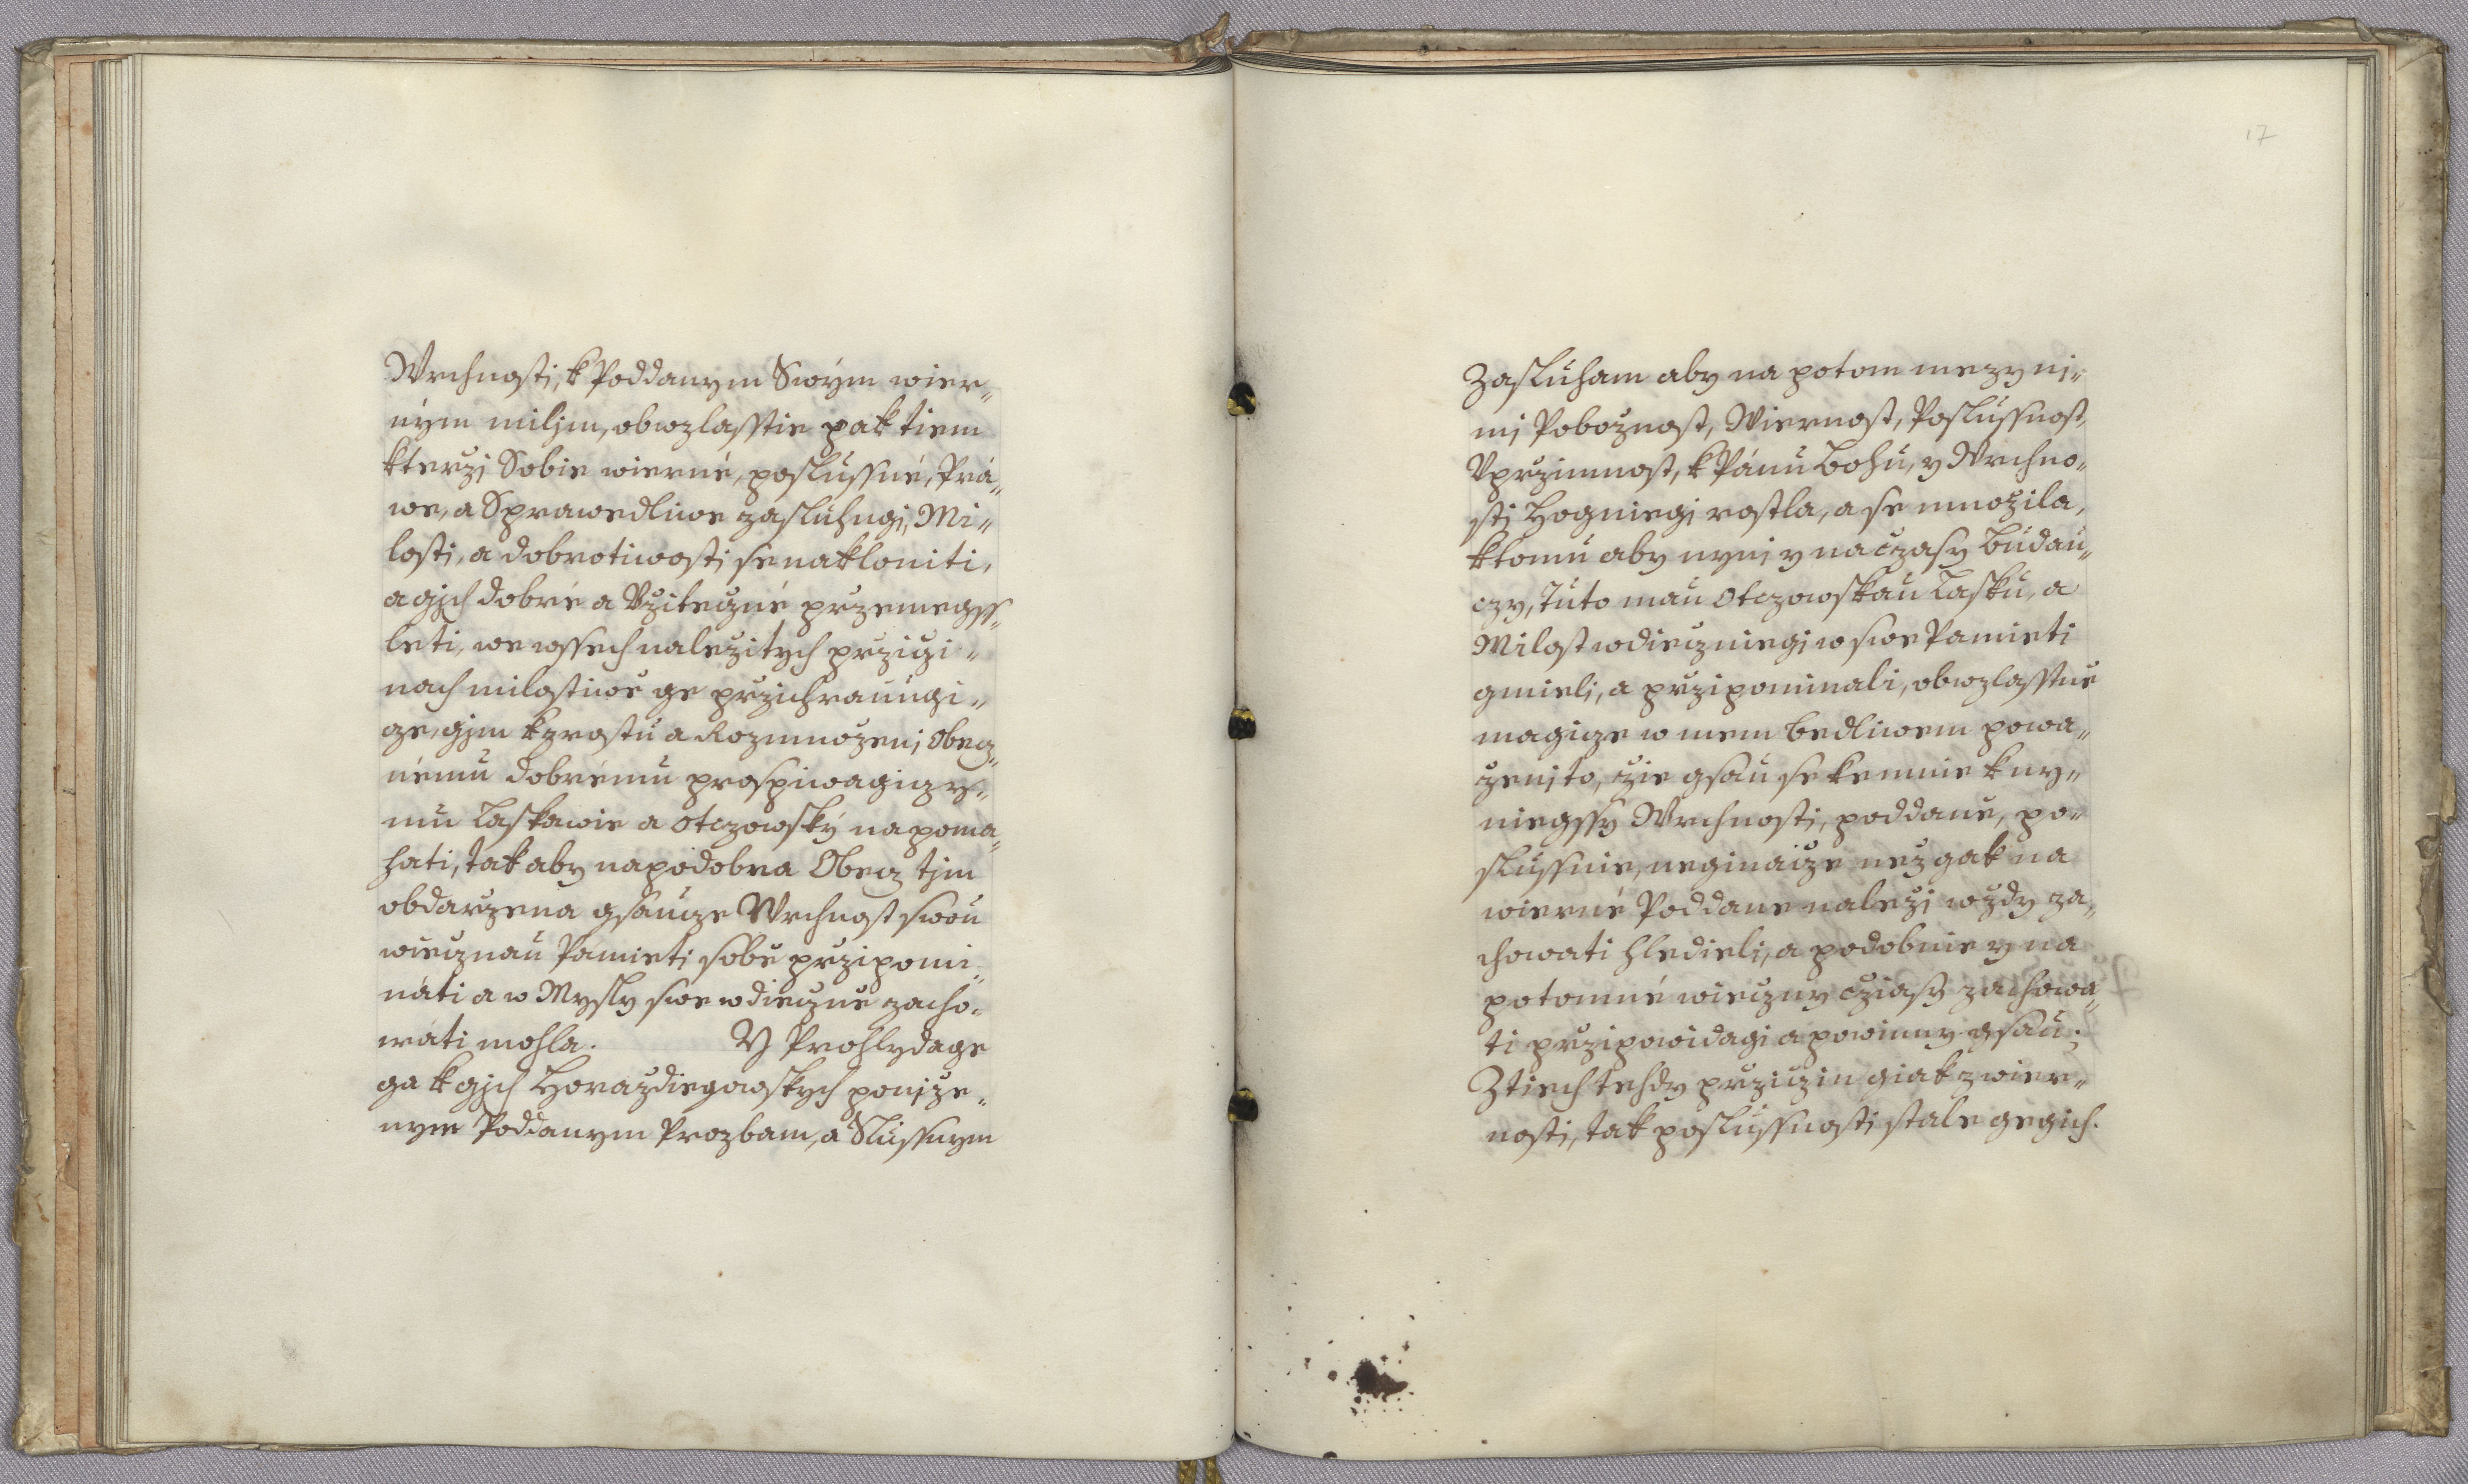 Wrchnosti, k Poddanym Swým wier„
ným miljm, obwzlasstie pak tiem
kterzj Sobie wierné, poslussné, Prá„
we, a Sprawedliwe zasluhugj, Mi„
losti, a dobrotiwosti se nakloniti,
a gjch dobré a Vžitečzné przemegss„
leti, we wssech naležitych pržiči„
nach milostiwe ge pržichraňugi„
cze, gjm k zrostu a Rozmnoženj Obecz„
némú dobrému prospiwagiczy„
mu Laskawie a otczowsky napoma„
hati, tak aby napodobna Obecz tjm
obdaržena gsaucze Wrchnost swou
wiečznau Pamieti sobe pržipomi„
náti a w Mysly swe wdiečzne zacho„
wati mohla. Y Prohlydage
ga k gjch Horaždiegowskych poniže„
nym Poddanym Prozbam, a Slussnym
17
Zasluham aby na potom mezy ni„
mj Pobožnost, Wiernost, Poslussnost,
Vpržimnost, k Pánu Bohu, y Wrchno„
stj Hogniegj rostla, a se množila,
k tomu aby nynj y na čzasy Budau„
czy, Tuto mau Otczowskau Lasku, a
Milost wdiečzniegj w swe Pamieti
gmieli, a pržipominali, obwzlasstne
magicze w mem bedliwem powa„
ženj to, žie gsau se ke mnie k ny„
niegssy Wrchnosti, poddane, po„
slussnie, neginačze než gak na
wierné Poddane naležj wždy za„
chowati hledieli, a podobnie y na
potomné wiečzny čziasy zachowa„
ti pržipowidagi a powinny gsau;
Z tiech tehdy pržičzin giak z wier„
nosti, tak poslussnosti stale gegich.